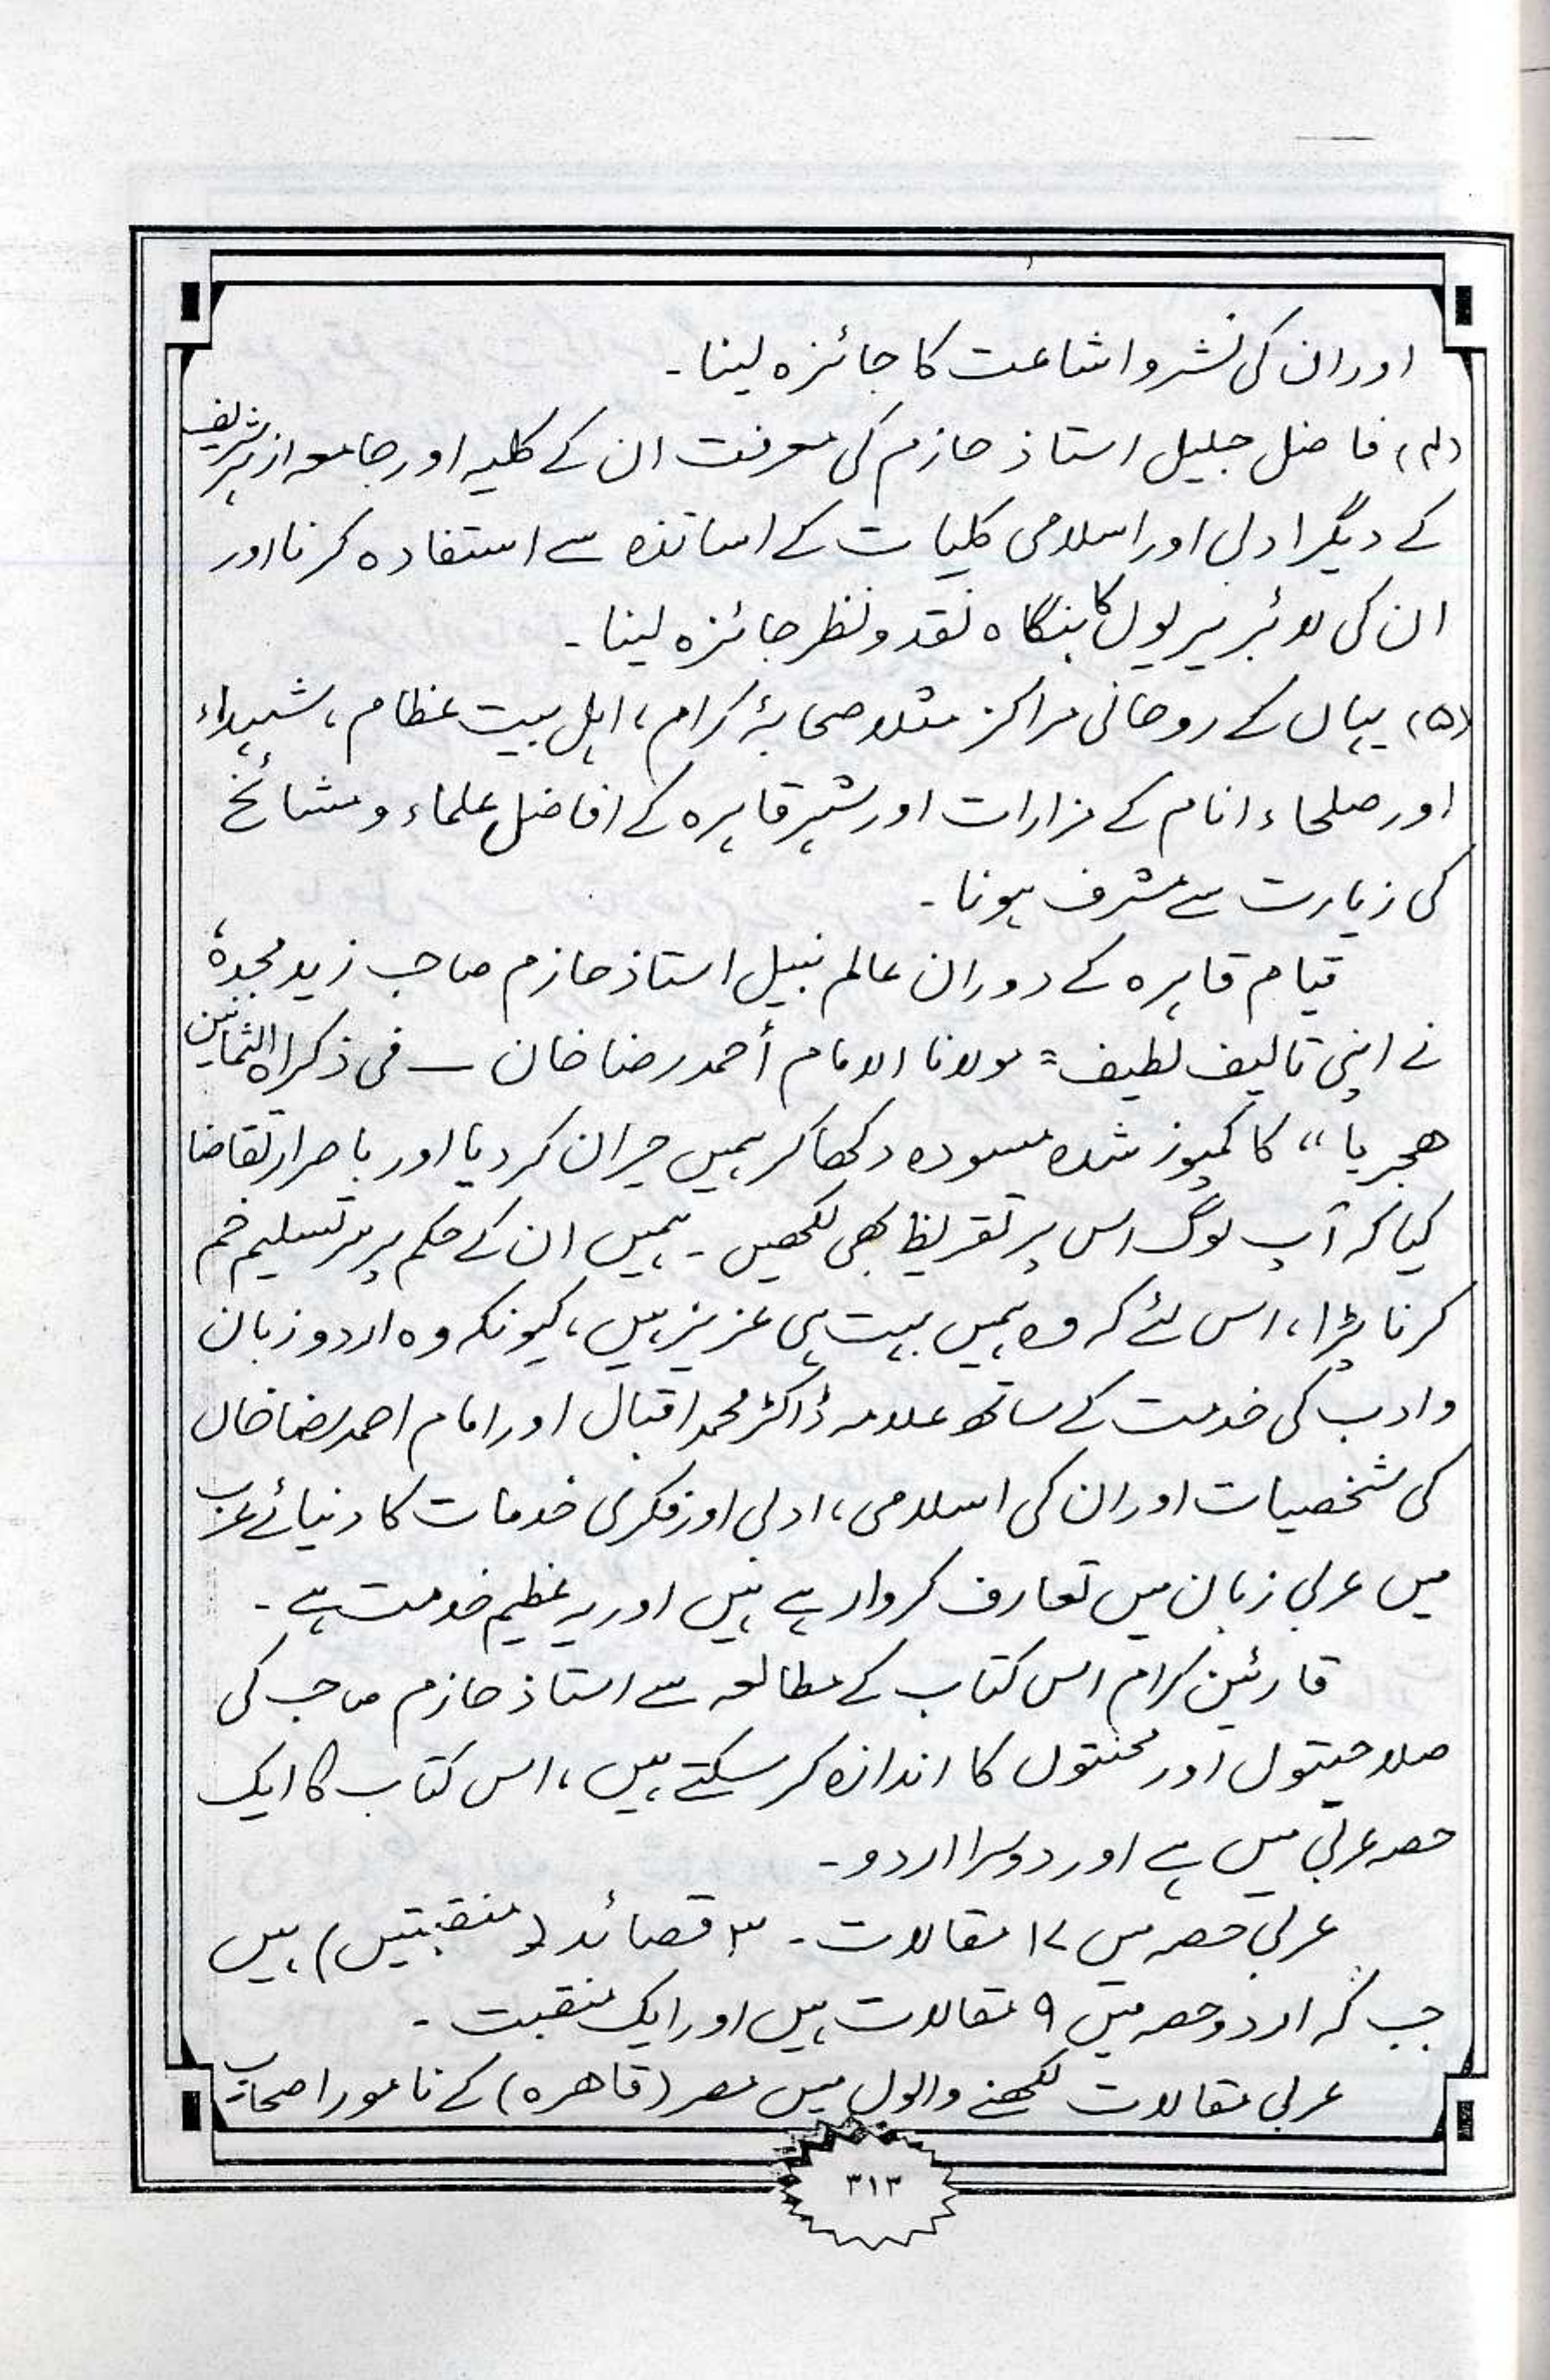 اور ان کی نشر و اشاعت کا جائزہ لینا۔
(۴) فاضل جلیل استاذ حازم کی معرفت ان کے کلیہ اور جامعہ ازہر شریف
کے دیگر ادبی اور اسلامی کلیات کے اساتذہ سے استفادہ کرنا اور
ان کی لائبریریوں کا بنگاہ نقد و نظر جائزہ لینا۔
(۵) یہاں کے روحانی مراکز مثلا صحابۂ کرام، اہل بیت عظام، شہداء
اور صلحاء انام کے مزارات اور شہر قاہرہ کے افاضل علماء و مشائخ
کی زیارت سے مشرف ہونا۔
قیام قاہرہ کے دوران عالم نبیل استاذ حازم صاحب زید مجدہٗ
نے اپنی تالیف لطیف "مولانا الامام أحمد رضا خان ــ فی ذکراہ الثمانین
ھجریا" کا کمپوز شدہ مسودہ دکھا کر ہمیں حیران کر دیا اور باصرار تقاضا
کیا کہ آپ لوگ اس پر تقریظ بھی لکھیں۔ ہمیں ان کے حکم پر سر تسلیم خم
کرنا پڑا، اس لئے کہ وہ ہمیں بہت ہی عزیز ہیں، کیونکہ وہ اردو زبان
و ادب کی خدمت کے ساتھ علامہ ڈاکٹر محمد اقبال اور امام احمد رضا خاں
کی شخصیات اور ان کی اسلامی، ادبی اور فکری خدمات کا دنیائے عرب
میں عربی زبان میں تعارف کروا رہے ہیں اور یہ عظیم خدمت ہے۔
قارئین کرام اس کتاب کے مطالعہ سے استاذ حازم صاحب کی
صلاحیتوں اور محنتوں کا اندازہ کر سکتے ہیں، اس کتاب کا ایک
حصہ عربی میں ہے اور دوسرا اردو۔
عربی حصہ میں ۱۷ مقالات۔ ۳ قصائد (منقبتیں) ہیں
جب کہ اردو حصہ میں ۹ مقالات ہیں اور ایک منقبت۔
عربی مقالات لکھنے والوں میں مصر (قاھرہ) کے نامور اصحاب
۳۱۳